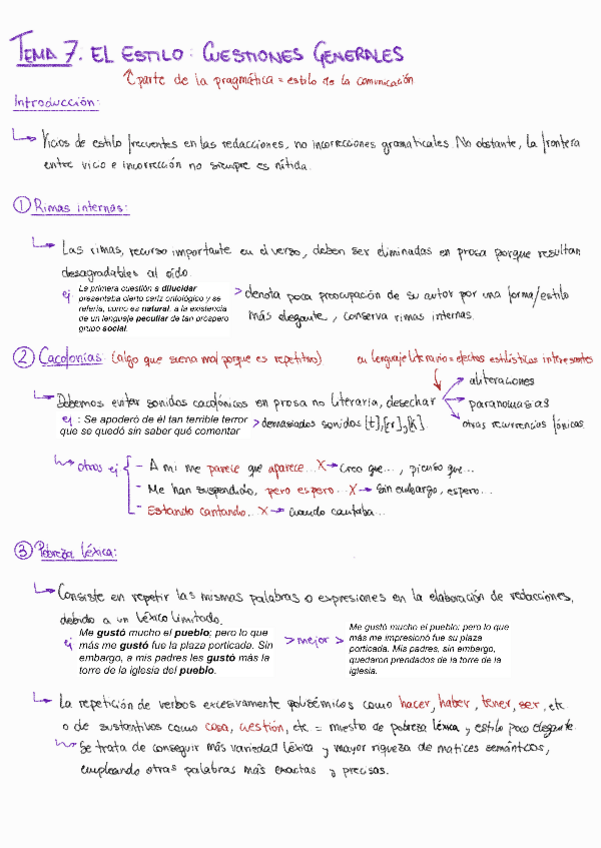 TEMA 7. EL ESTILO: CUESTIONES GENERALES
↑ parte de la pragmática = estilo de la comunicación
Introducción:
↳ Vicios de estilo frecuentes en las redacciones, no incorrecciones gramaticales. No obstante, la frontera
entre vicio e incorrección no siempre es nítida.
① Rimas internas:
↳ Las rimas, recurso importante en el verso, deben ser eliminadas en prosa porque resultan
desagradables al oído.
ej La primera cuestión a dilucidar
presentaba cierto cariz ontológico y se
refería, como es natural, a la existencia
de un lenguaje peculiar de tan próspero
grupo social.
> denota poca preocupación de su autor por una forma/estilo
más elegante, conserva rimas internas.
② Cacofonías: (algo que suena mal porque es repetitivo) en lenguaje literario = efectos estilísticos interesantes
↳ Debemos evitar sonidos cacofónicos en prosa no literaria, desechar
→ aliteraciones
→ paranomasias
→ otras recurrencias fónicas
ej : Se apoderó de él tan terrible terror
que se quedó sin saber qué comentar
> demasiados sonidos [t],[rr],[k].
↳ otros ej
- A mi me parece que aparece... X → Creo que..., pienso que...
- Me han suspendido, pero espero... X → Sin embargo, espero...
- Estando cantando... X → cuando cantaba...
③ Pobreza léxica:
↳ Consiste en repetir las mismas palabras o expresiones en la elaboración de redacciones,
debido a un léxico limitado.
ej Me gustó mucho el pueblo; pero lo que
más me gustó fue la plaza porticada. Sin
embargo, a mis padres les gustó más la
torre de la iglesia del pueblo.
> mejor >
Me gustó mucho el pueblo; pero lo que
más me impresionó fue su plaza
porticada. Mis padres, sin embargo,
quedaron prendados de la torre de la
iglesia.
↳ La repetición de verbos excesivamente polisémicos como hacer, haber, tener, ser, etc
o de sustantivos como cosa, cuestión, etc = muestra de pobreza léxica y estilo poco elegante.
↳ Se trata de conseguir más variedad léxica y mayor riqueza de matices semánticos,
empleando otras palabras más exactas y precisas.